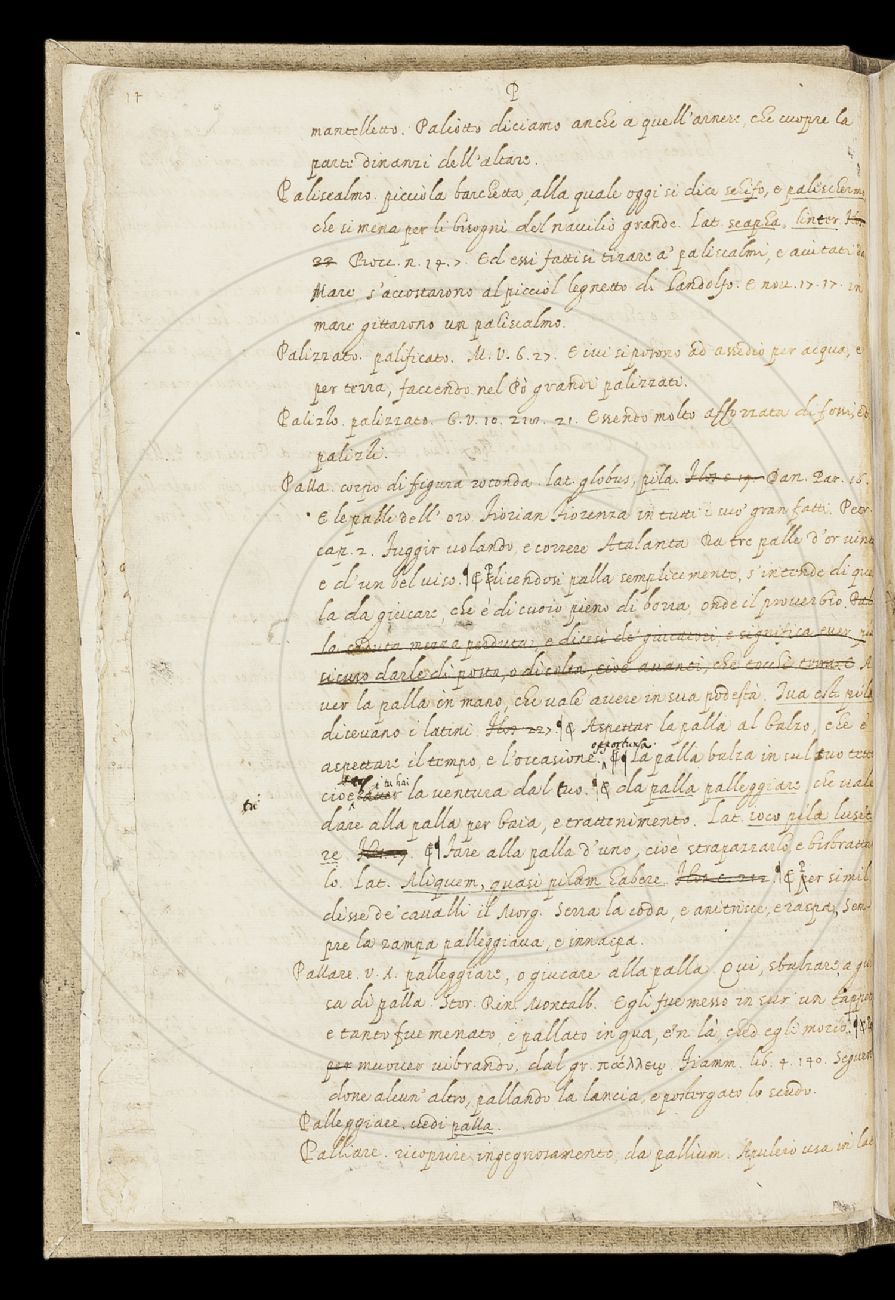 17
P
mantelletto. Paliotto diciamo anche a quell'arnese, che cuopre la
parte dinanzi dell'altare.
Paliscalmo. piccola barchetta, alla quale oggi si dice schifo, e palischermo
che si mena per li bisogni del navilio grande. Lat. scapha, linter
22 Bocc. n. 14. 7. Ed essi fattisi tirare a' paliscalmi, e aiutati da
Mare s'accostarono al picciol legnetto di Landolfo. E nov. 17. 17. in
mare gittarono un paliscalmo.
Palizzato. palificato. M. V. 6. 27. E ivi si posono ad assedio per acqua, e
per terra, faccendo nel Pò grandi palizzati.
Palizzo. palizzato. G. V. 10. 21. Essendo molto afforzata di fossi, ed
palizzi.
Palla. corpo di figura rotonda. lat. globus, pila. Dan. Par. 16.
E le palle dell'oro Fiorian Fiorenza in tutti i suo' gran fatti. Petr.
cap. 2. Fuggir volando, e correre Atalanta Da tre palle d'or vinta
e d'un bel viso. ¶ Dicendosi palla semplicemente, s'intende di quel
la da giucare, che è di cuoio pieno di borra, onde il proverbio. Pal
la caduta mezza perduta: e dicesi de' giucatori e significa esser più
sicuro darle di posta, o di colta, cioè avanti, che tocchi terra. A
ver la palla in mano, che vale avere in sua podestà. Tua est pila
dicevano i latini. ¶ Aspettar la palla al balzo, che è
opportuna.
aspettare il tempo, e l'occasione. ¶ La palla balza in sul tuo tetto
tu hai
tu'
cioè la ventura dal tuo. ¶ da palla palleggiare, che vale
dare alla palla per baia, e trattenimento. Lat. ioco pila lusita
re ¶ Fare alla palla d'uno, cioè strapazzarlo e birbratta
lo. Lat. Aliquem, quasi pilam habere. ¶ Per simil.
disse de' cavalli il Morg. Serra la coda, e anitrisce, e raspa, Sem
pre la zampa palleggiava, e innaspa.
Pallare. v. A. palleggiare, o giucare alla palla. Qui, sbalzare, a gui
sa di palla. Stor. Rin. Montalb. Egli fue messo in sur un tappeto
e tanto fue menato, e pallato in qua, e'n là, ched egli morìo. ¶
per muover vibrando, dal gr. πάλλειν. Fiamm. lib. 4. 140. Seguen
done alcun'altro, pallando la lancia, e postergato lo scudo.
Palleggiare. vedi palla.
Palliare. ricoprire ingegnosamente, da pallium. Apuleio usa in lat